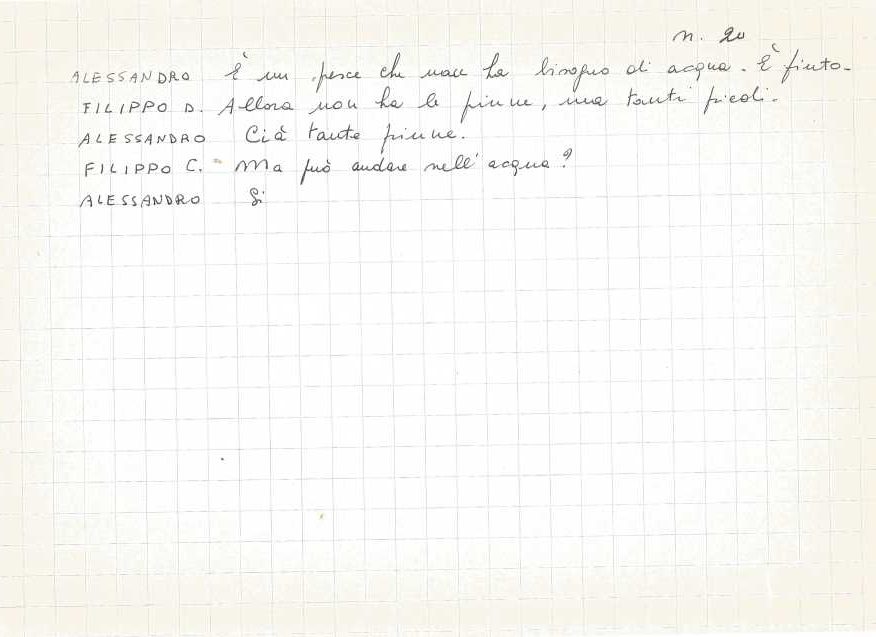 n. 20
ALESSANDRO È un pesce che non ha bisogno di acqua. È finto.
FILIPPO D. Allora non ha le pinne, ma tanti piedi.
ALESSANDRO Cià tante pinne.
FILIPPO C. - Ma può andare nell'acqua?
ALESSANDRO Si